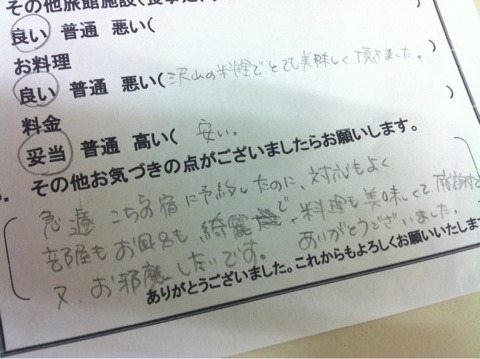 その他旅館施設(食事処、
良い 普通 悪い(
お料理
良い 普通 悪い(沢山の料理でとても美味しく頂きました。)
料金
妥当 普通 高い( 安い。 )
その他お気づきの点がございましたらお願いします。
急遽こちらの宿に予約したのに、対応もよく
部屋もお風呂も綺麗で、料理も美味しくて
ありがとうございました。
又、お邪魔したいです。
ありがとうございました。これからもよろしくお願いいたします